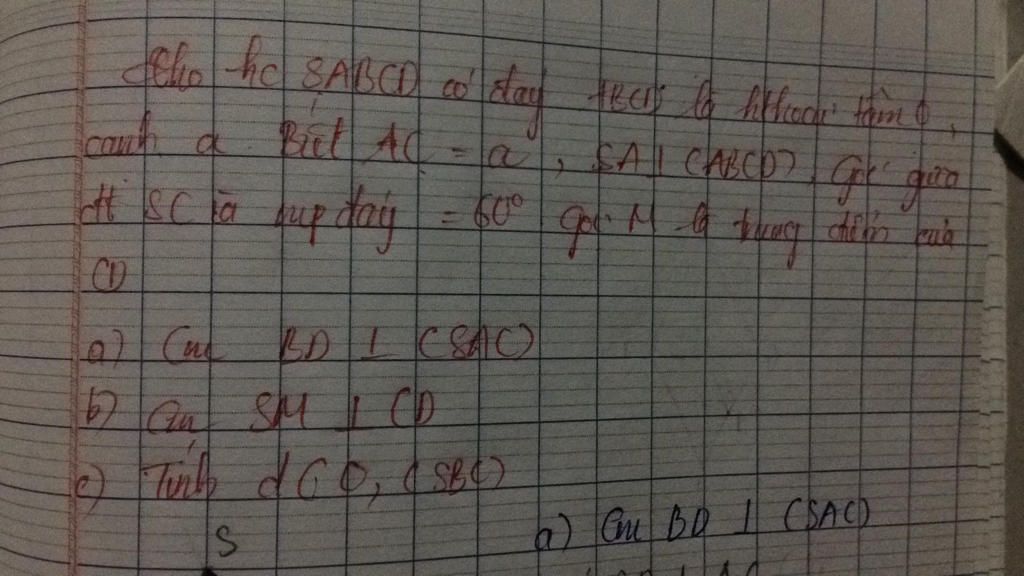 Cho hc SABCD có đáy ABCD là hthoi tâm O,
cạnh a. Biết AC = a, SA ⊥ (ABCD), Góc giữa
đt SC và mp đáy = 60° gọi M là trung điểm của
CD
a) Cm BD ⊥ (SAC)
b) Cm SM ⊥ CD
c) Tính d(O, (SBC)
S
a) Cm BD ⊥ (SAC)